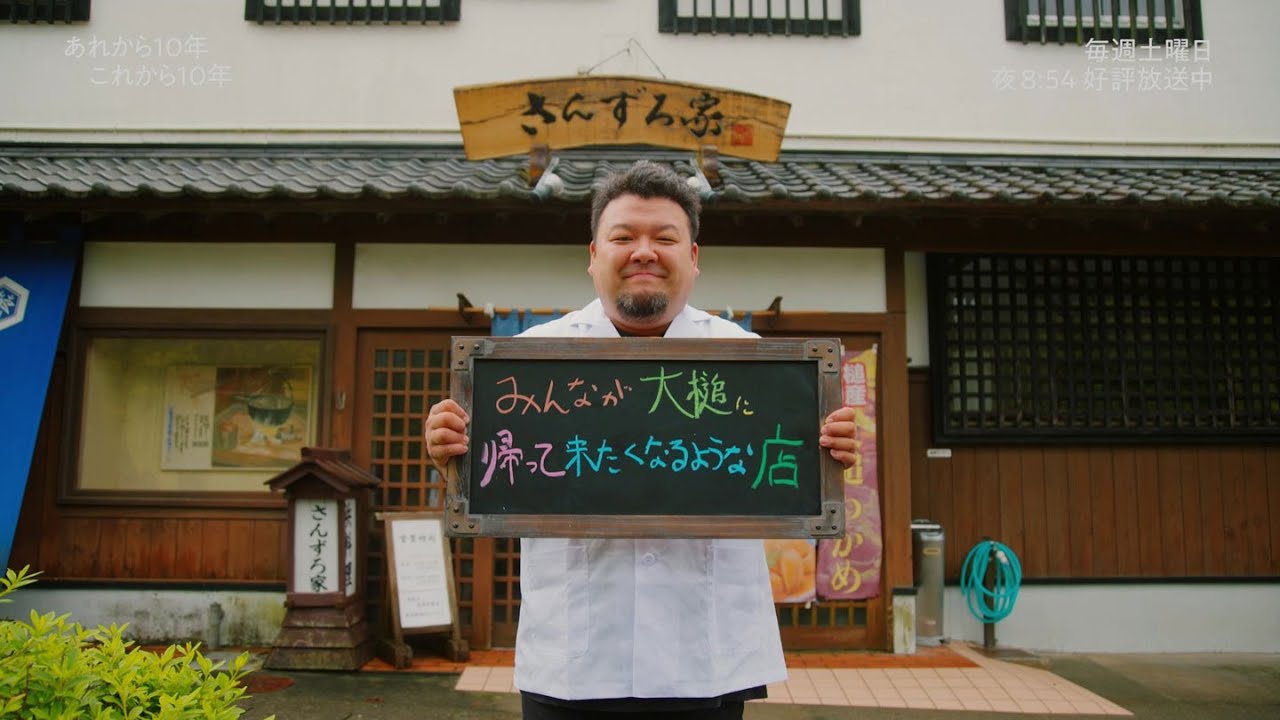 あれから10年
これから10年
毎週土曜日
夜8:54 好評放送中
さんずろ家
みんなが大槌に
帰って来たくなるような店
さんずろ家
営業時間